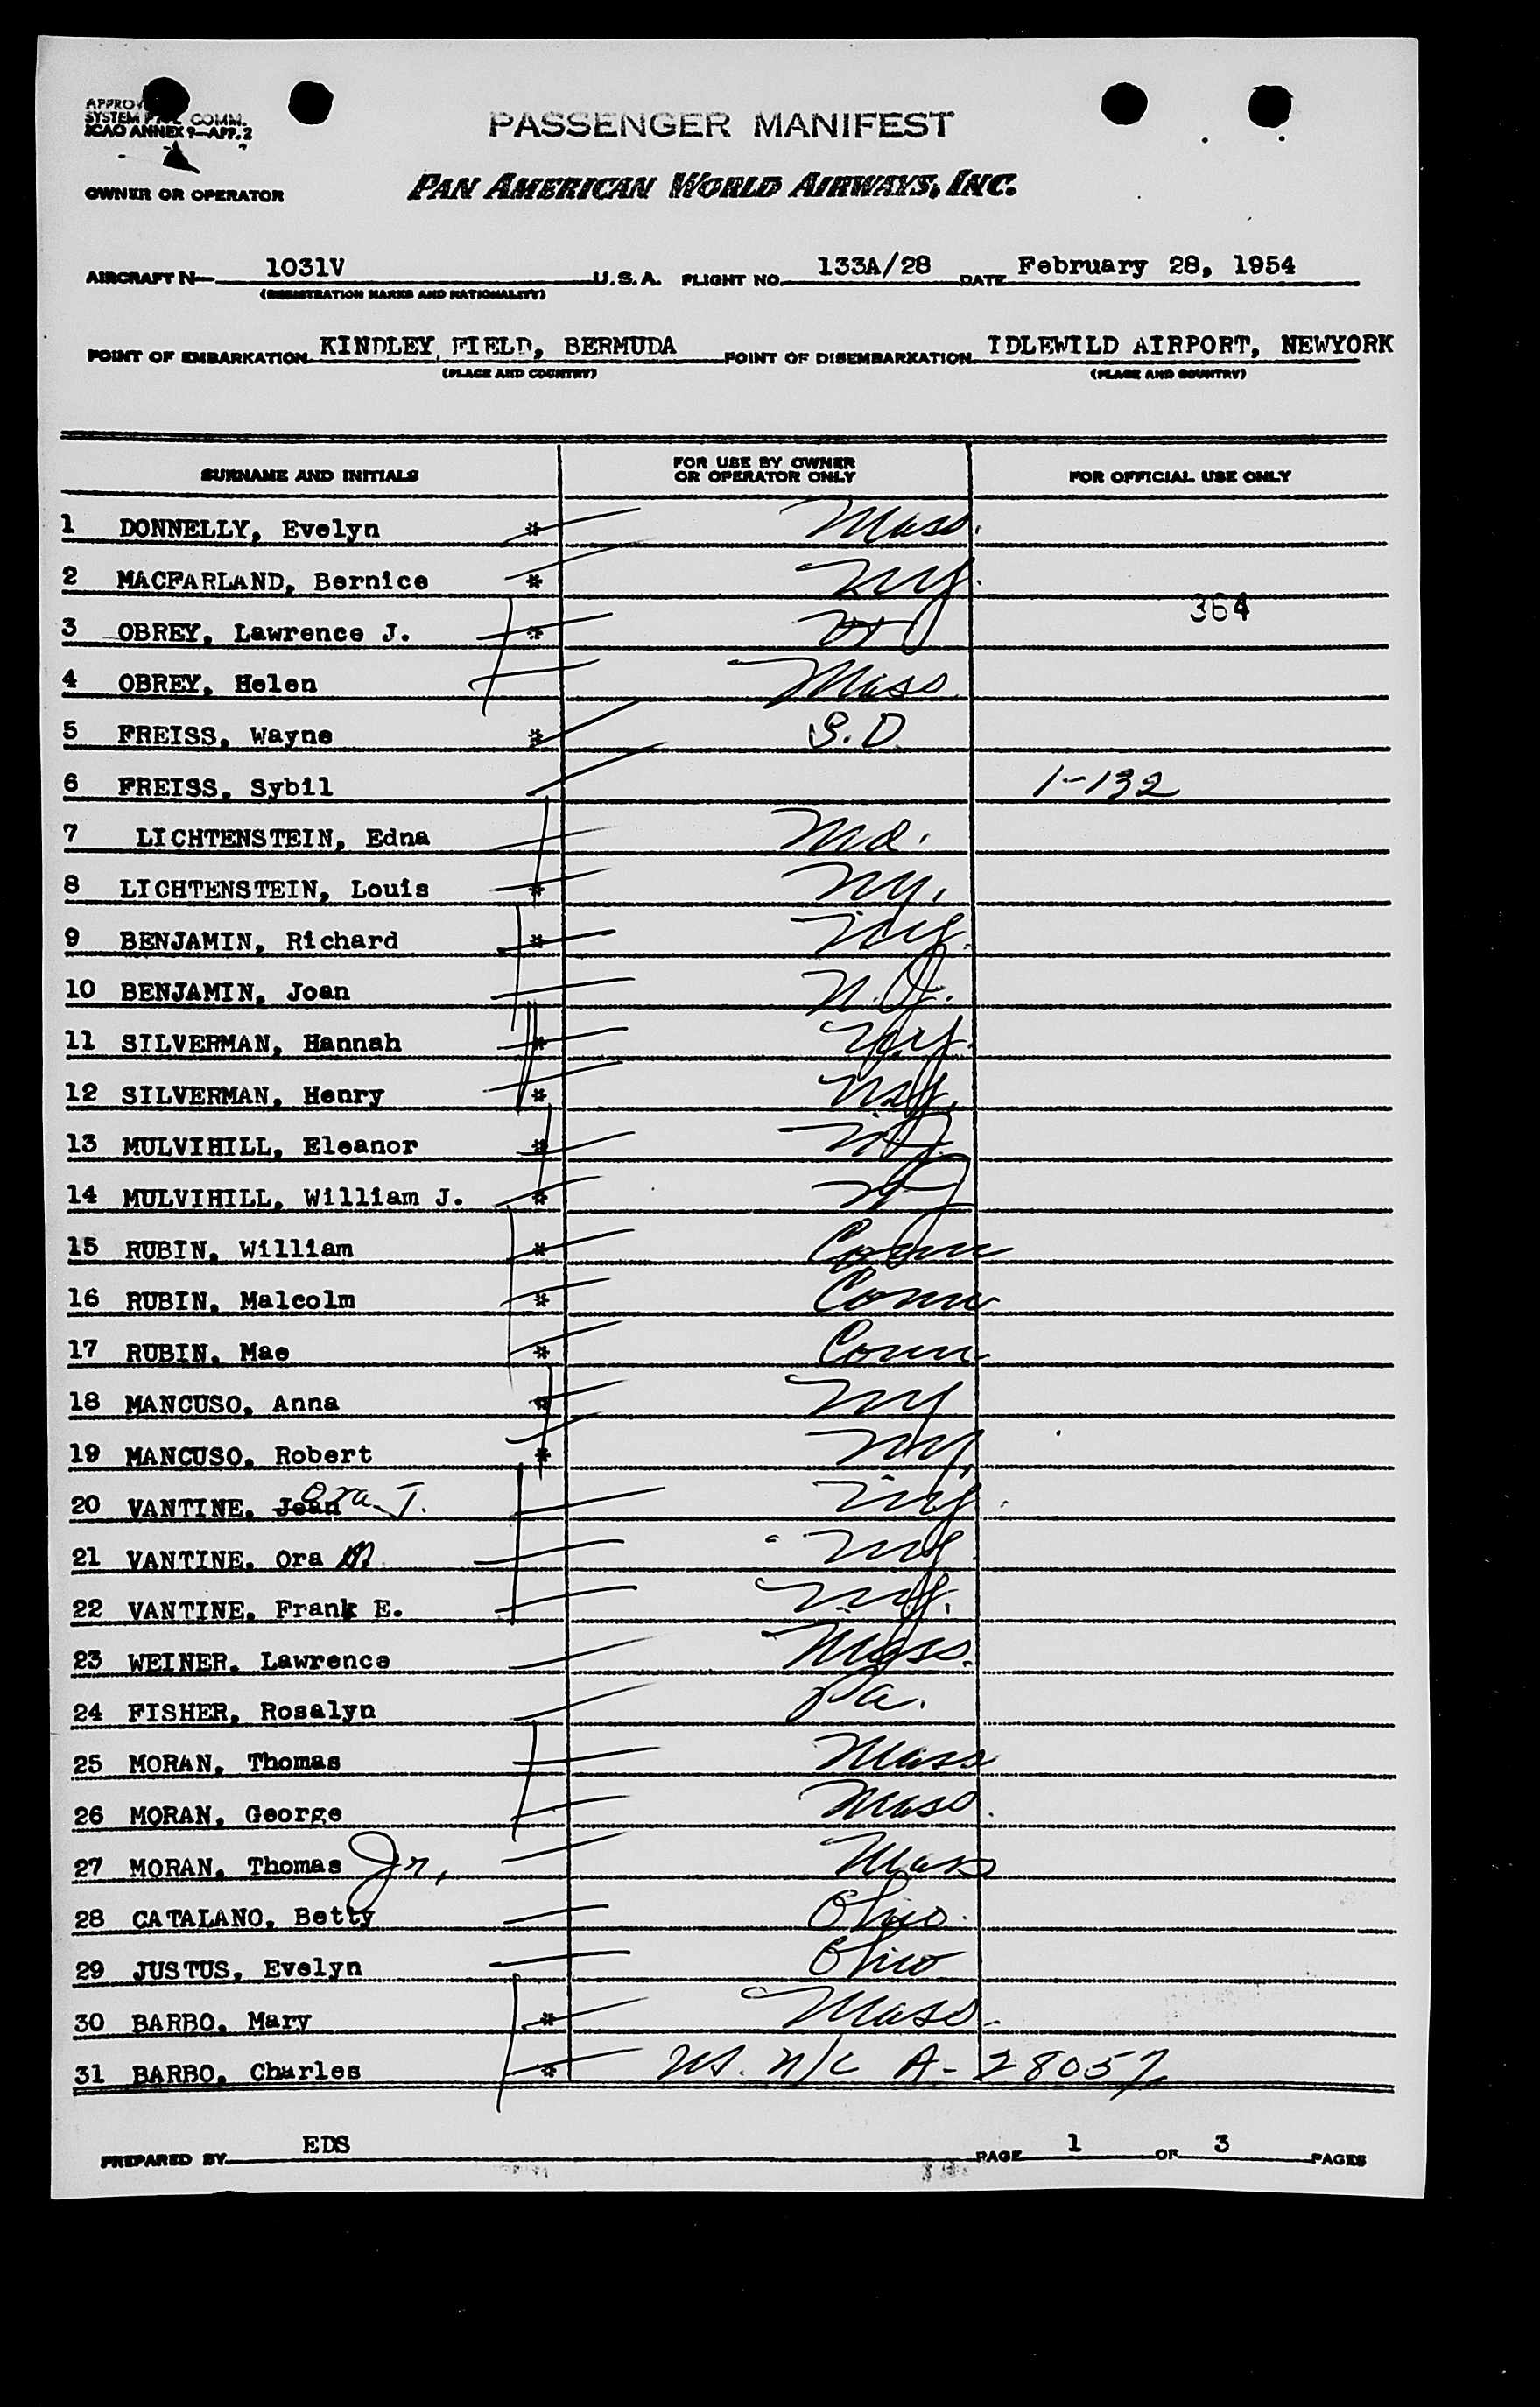 SYSTEM COMM.
ICAO ANNEX 9—APP. 2
PASSENGER MANIFEST
OWNER OR OPERATOR PAN AMERICAN WORLD AIRWAYS, INC.
AIRCRAFT N— 1031V U.S.A. FLIGHT NO. 133A/28 DATE February 28, 1954
(REGISTRATION MARKS AND NATIONALITY)
POINT OF EMBARKATION KINDLEY FIELD, BERMUDA POINT OF DISEMBARKATION IDLEWILD AIRPORT, NEWYORK
(PLACE AND COUNTRY) (PLACE AND COUNTRY)
SURNAME AND INITIALS FOR USE BY OWNER OR OPERATOR ONLY FOR OFFICIAL USE ONLY
1 DONNELLY, Evelyn * Mass.
2 MACFARLAND, Bernice * NY.
364
3 OBREY, Lawrence J. * NJ
4 OBREY, Helen Mass
5 FREISS, Wayne * S.D.
6 FREISS, Sybil 1-132
7 LICHTENSTEIN, Edna Md.
8 LICHTENSTEIN, Louis * NY.
9 BENJAMIN, Richard * NY.
10 BENJAMIN, Joan N.J.
11 SILVERMAN, Hannah * N.Y.
12 SILVERMAN, Henry * NY.
13 MULVIHILL, Eleanor * NJ.
14 MULVIHILL, William J. * NJ
15 RUBIN, William * Conn
16 RUBIN, Malcolm * Conn
17 RUBIN, Mae * Conn
18 MANCUSO, Anna * NY
19 MANCUSO, Robert * NY
20 VANTINE, Jean Ora T. NY.
21 VANTINE, Ora NY.
22 VANTINE, Frank E. N.Y.
23 WEINER, Lawrence Mass.
24 FISHER, Rosalyn Pa.
25 MORAN, Thomas Mass
26 MORAN, George Mass.
27 MORAN, Thomas Jr. Mass
28 CATALANO, Betty Ohio.
29 JUSTUS, Evelyn Ohio
30 BARBO, Mary * Mass.
31 BARBO, Charles * US. N/C A-28057
PREPARED BY EDS PAGE 1 OF 3 PAGES